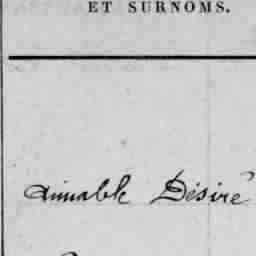 ET SURNOMS.
Aimable Désiré